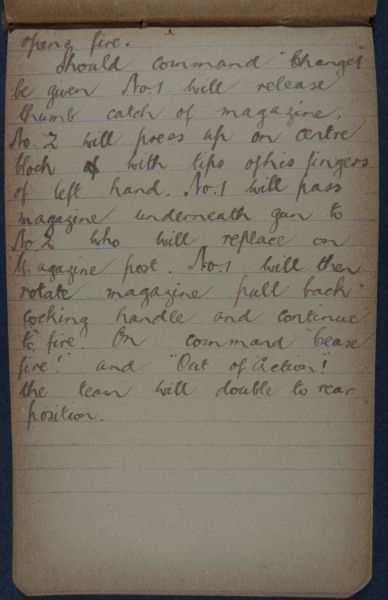 opening fire.
Should command "Change"
be given No.1 will release
thumb catch of magazine,
No. 2 will press up on centre
block with tips of his fingers
of left hand. No.1 will pass
magazine underneath gun to
No.2 who will replace on
Magazine post. No.1 will then
rotate magazine pull back
cocking handle and continue
to fire. On command "Cease
fire!" and "Out of Action"!
the team will double to rear
position.